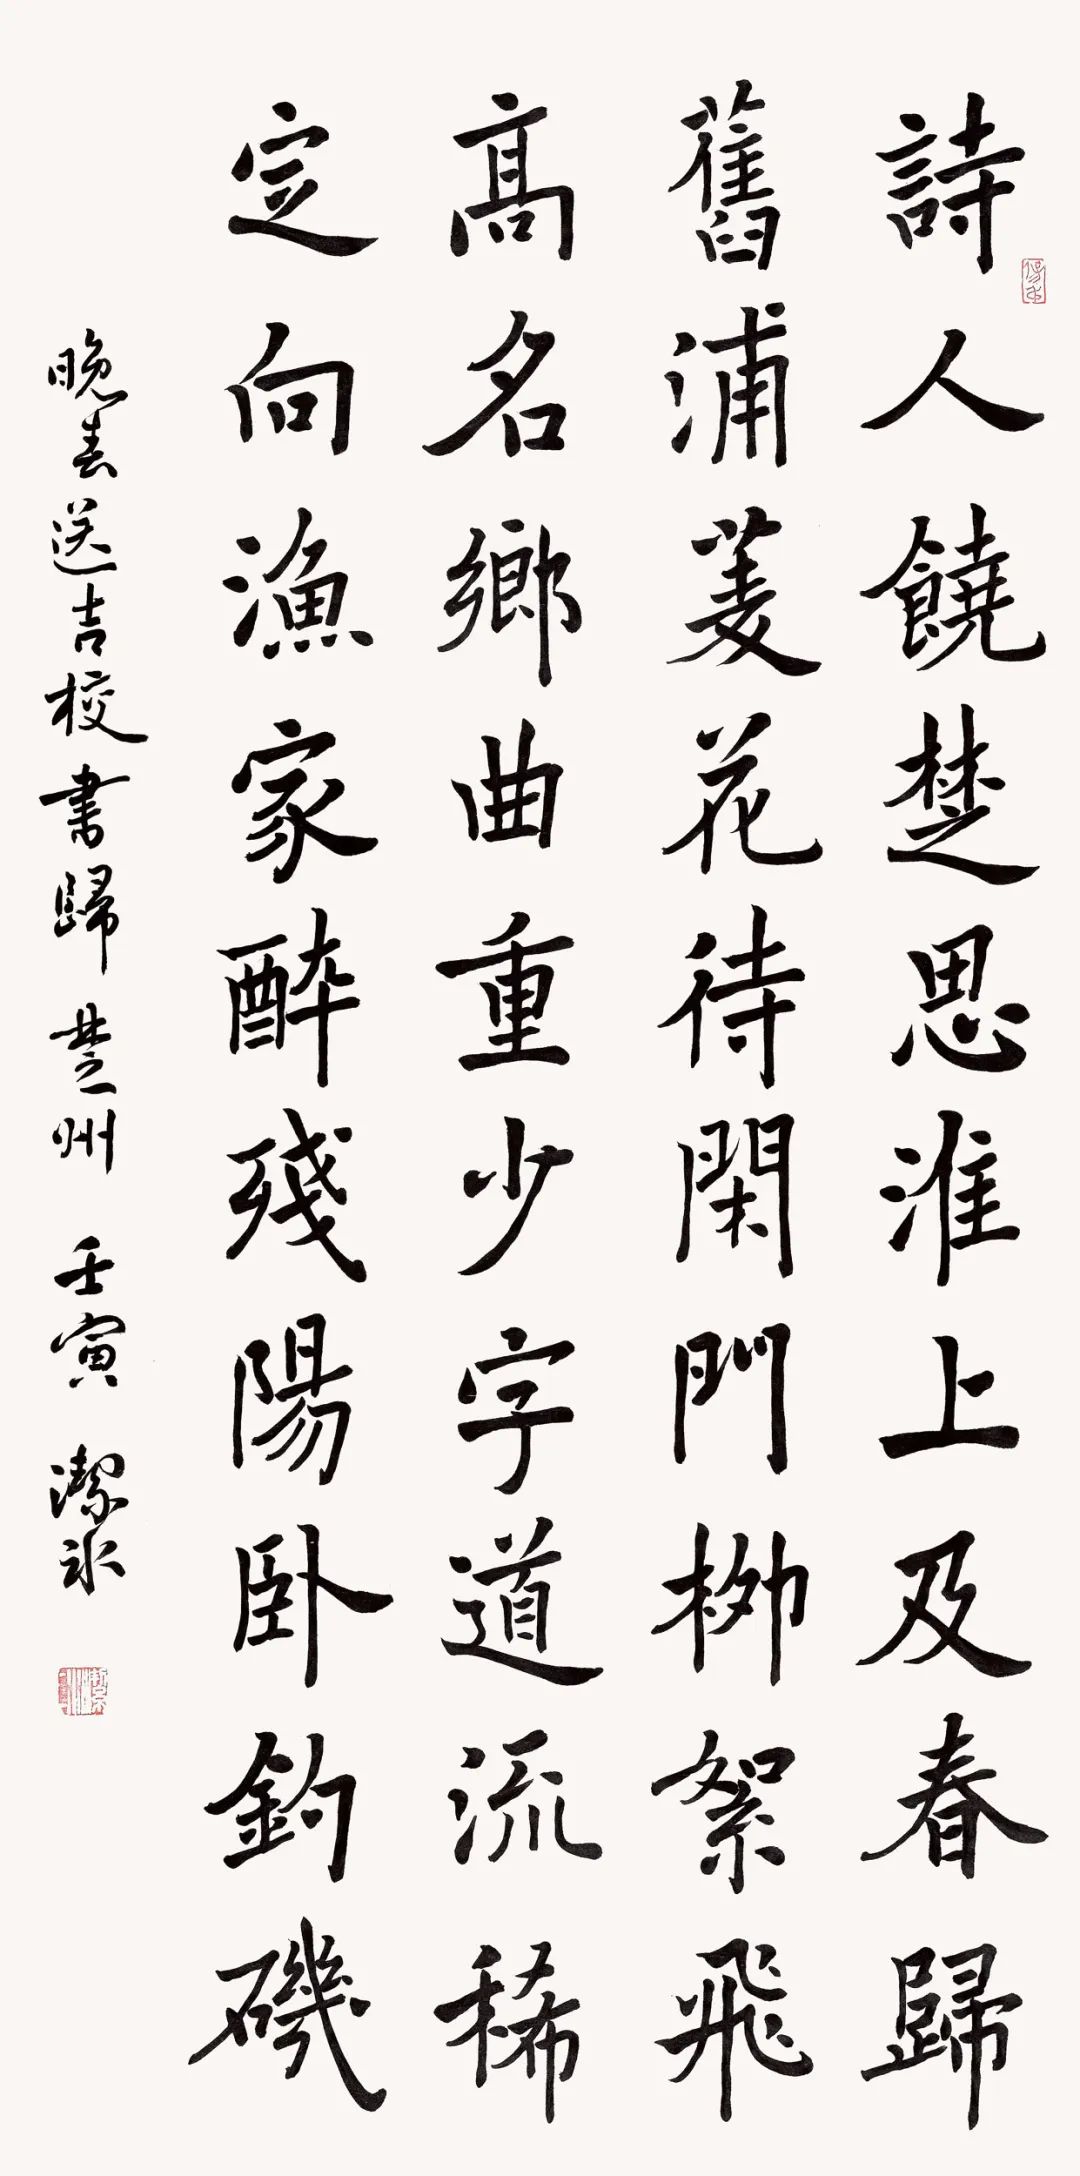 詩人饒楚思淮上及春歸
舊浦菱花待閑門柳絮飛
高名鄉曲重少字道流稀
定向漁家醉殘陽臥釣磯
晚春送吉校书歸楚州 壬寅 潔冰